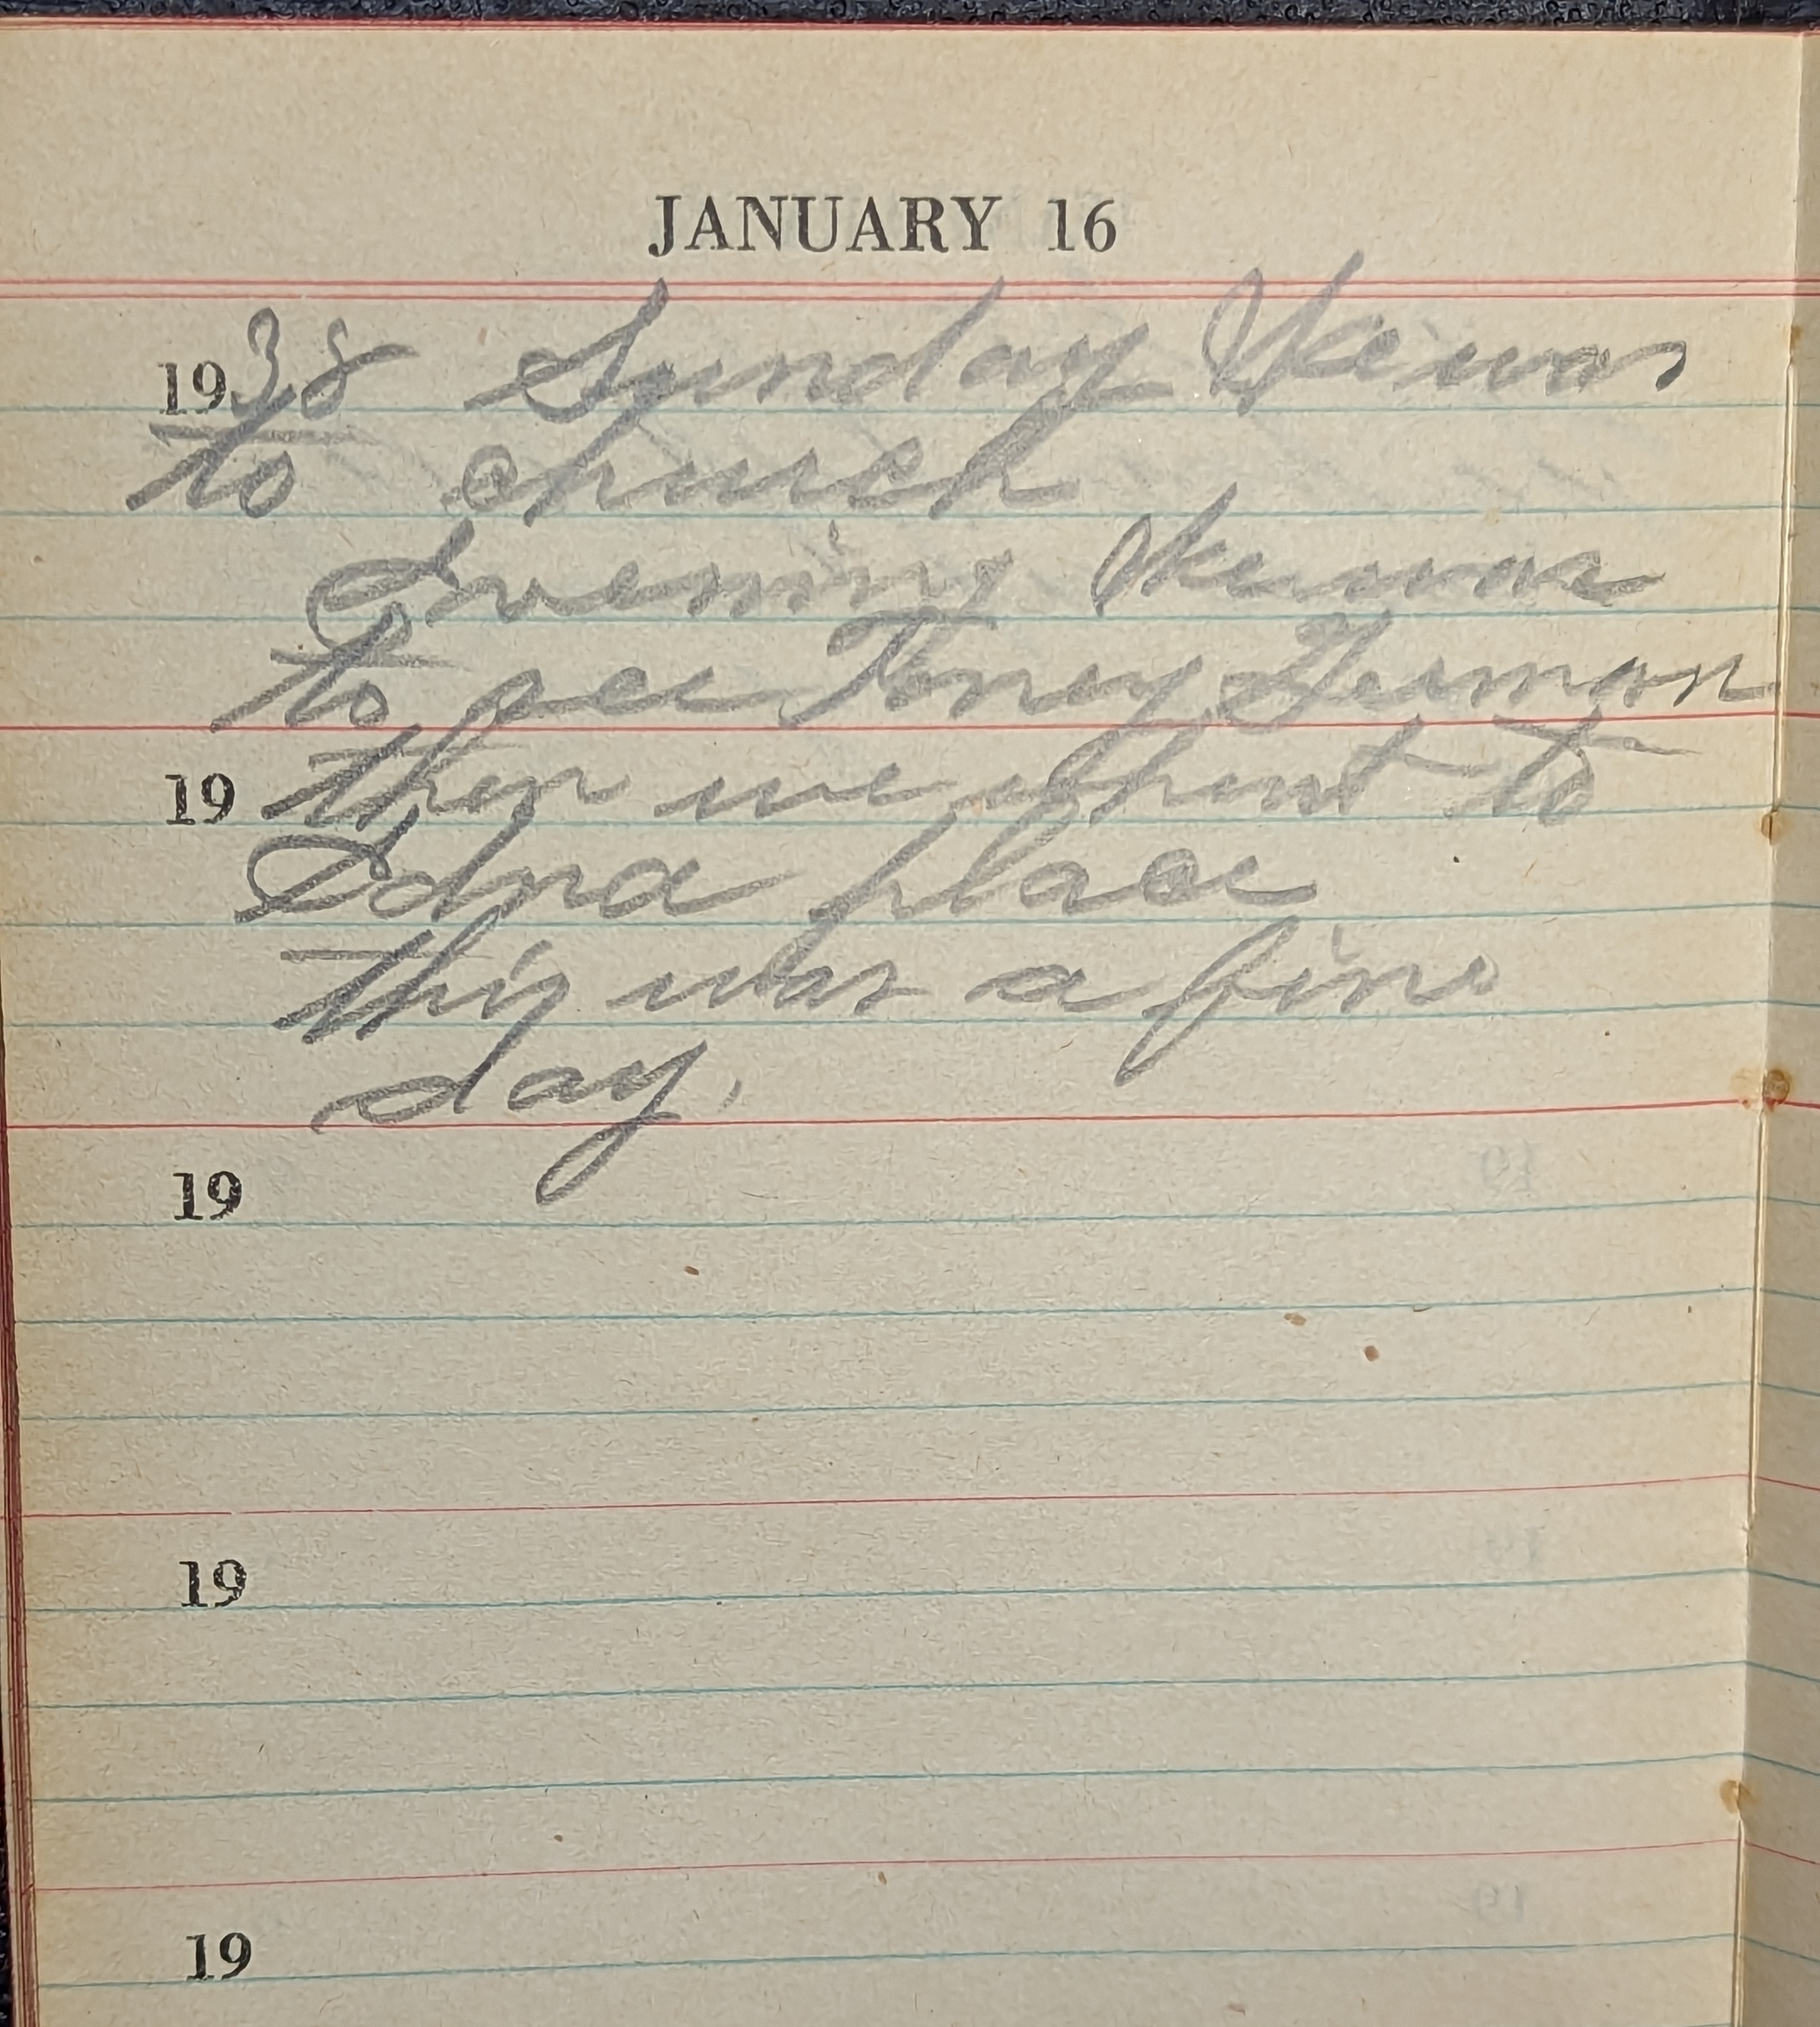 JANUARY 16
1938 Sunday Ike was
to church
Evening Ike was
to see Toney German
19 then we spent to
Edna place
this was a fine
day.
19
19
19